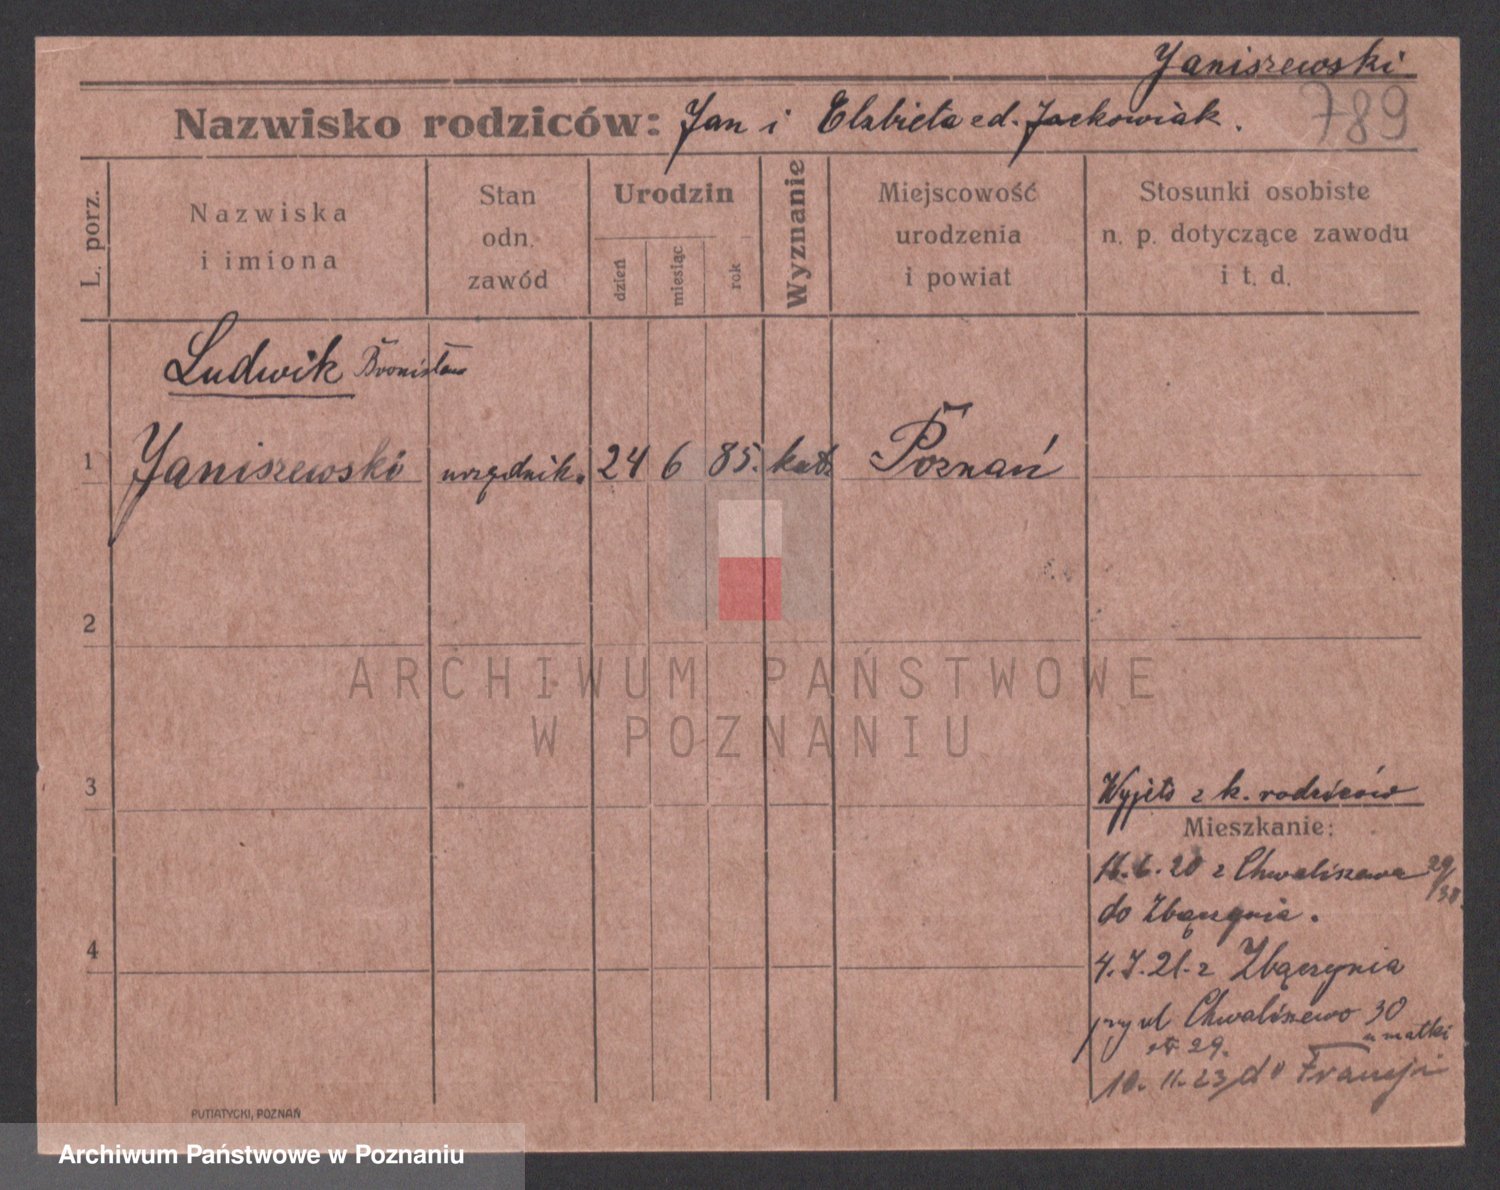 Janiszewski
Nazwisko rodziców: Jan i Elzbieta cd. Jackowiak.
789
L. porz.
Nazwiska
i imiona
Stan
odn.
zawód
Urodzin
dzień
miesiąc
rok
Wyznanie
Miejscowość
urodzenia
i powiat
Stosunki osobiste
n. p. dotyczące zawodu
i t. d.
Ludwik Bronisław
1 Janiszewski urzędnik. 24 6 85. kat. Poznań
2
ARCHIWUM PAŃSTWOWE
W POZNANIU
3
Wyjęto z k. rodziców
Mieszkanie:
11.6.20 z Chwaliszewa 29/30.
do Zbąszynia.
4
4.I.21. z Zbąszynia
przy ul Chwaliszewo 30
u matki
29.
10.11.23 do Francji
PUTIATYCKI, POZNAŃ
Archiwum Państwowe w Poznaniu